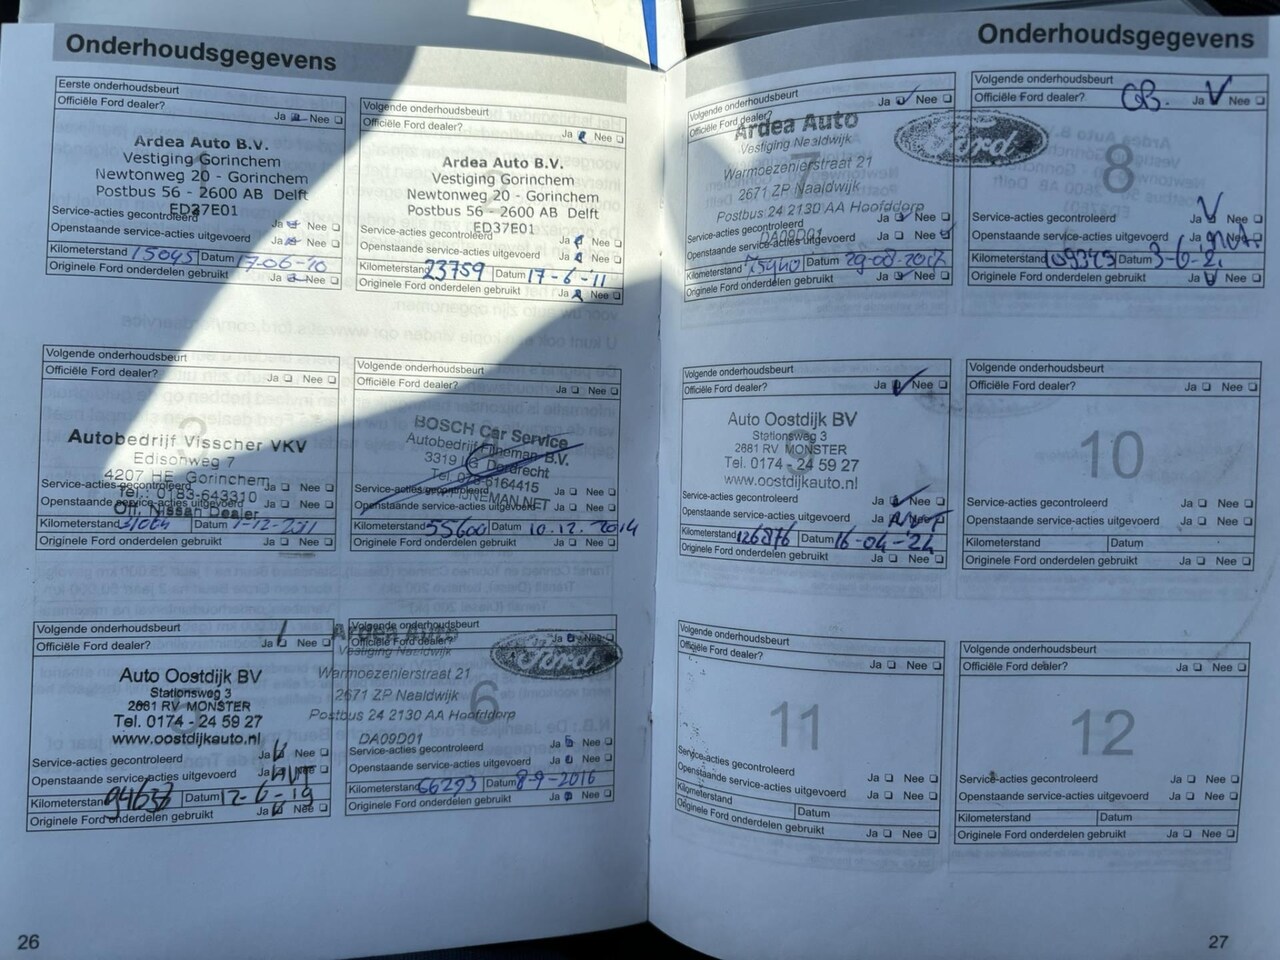 Onderhoudsgegevens
Eerste onderhoudsbeurt
Officiële Ford dealer?
Ja Nee
Ardea Auto B.V.
Vestiging Gorinchem
Newtonweg 20 - Gorinchem
Postbus 56 - 2600 AB Delft
ED37E01
Service-acties gecontroleerd
Ja Nee
Openstaande service-acties uitgevoerd Ja Nee
Kilometerstand 15045 Datum 17-06-10
Originele Ford onderdelen gebruikt Ja Nee
Volgende onderhoudsbeurt
Officiële Ford dealer?
Ja Nee
Ardea Auto B.V.
Vestiging Gorinchem
Newtonweg 20 - Gorinchem
Postbus 56 - 2600 AB Delft
ED37E01
Service-acties gecontroleerd
Ja Nee
Openstaande service-acties uitgevoerd Ja Nee
Kilometerstand 23759 Datum 17-6-'11
Originele Ford onderdelen gebruikt Ja Nee
Volgende onderhoudsbeurt
Officiële Ford dealer? Ja Nee
3
Autobedrijf Visscher VKV
Edisonweg 7
4207 HE Gorinchem
Service-acties gecontroleerd Ja Nee
Tel.: 0183-643310
Openstaande service-acties uitgevoerd Ja Nee
Off. Nissan Dealer
Kilometerstand Datum
Originele Ford onderdelen gebruikt Ja Nee
Volgende onderhoudsbeurt
Officiële Ford dealer? Ja Nee
BOSCH Car Service
Autobedrijf Fijneman B.V.
Dordrecht
Service-acties gecontroleerd Ja Nee
Openstaande service-acties uitgevoerd Ja Nee
Kilometerstand 55600 Datum 10.12.2014
Originele Ford onderdelen gebruikt Ja Nee
Volgende onderhoudsbeurt
Officiële Ford dealer? Ja Nee
Auto Oostdijk BV
Stationsweg 3
2681 RV MONSTER
Tel. 0174 - 24 59 27
www.oostdijkauto.nl
Service-acties gecontroleerd Ja Nee
Openstaande service-acties uitgevoerd Ja NVT
Kilometerstand Datum 12-6-19
Originele Ford onderdelen gebruikt Ja Nee
Volgende onderhoudsbeurt
Officiële Ford dealer? Ja Nee
Ardea Auto
Ford
Vestiging Naaldwijk
Warmoezenierstraat 21
2671 ZP Naaldwijk
6
Postbus 24 2130 AA Hoofddorp
DA09D01
Service-acties gecontroleerd Ja Nee
Openstaande service-acties uitgevoerd Ja Nee
Kilometerstand 66293 Datum 8-9-2016
Originele Ford onderdelen gebruikt Ja Nee
26
Onderhoudsgegevens
Volgende onderhoudsbeurt
Officiële Ford dealer? Ja Nee
Ardea Auto
Ford
Vestiging Naaldwijk
7
Warmoezenierstraat 21
2671 ZP Naaldwijk
Postbus 24 2130 AA Hoofddorp
DA09D01
Service-acties gecontroleerd Ja Nee
Openstaande service-acties uitgevoerd Ja Nee
Kilometerstand Datum
Originele Ford onderdelen gebruikt Ja Nee
Volgende onderhoudsbeurt
Officiële Ford dealer? GB. Ja Nee
8
Service-acties gecontroleerd Ja
Openstaande service-acties uitgevoerd Ja
Kilometerstand Datum
Originele Ford onderdelen gebruikt Ja Nee
Volgende onderhoudsbeurt
Officiële Ford dealer? Ja Nee
Auto Oostdijk BV
Stationsweg 3
2681 RV MONSTER
9
Tel. 0174 - 24 59 27
www.oostdijkauto.nl
Service-acties gecontroleerd Ja Nee
Openstaande service-acties uitgevoerd
Kilometerstand 126876 Datum 16-04-24
Originele Ford onderdelen gebruikt Ja Nee
Volgende onderhoudsbeurt
Officiële Ford dealer? Ja Nee
10
Service-acties gecontroleerd Ja Nee
Openstaande service-acties uitgevoerd Ja Nee
Kilometerstand Datum
Originele Ford onderdelen gebruikt Ja Nee
Volgende onderhoudsbeurt
Officiële Ford dealer? Ja Nee
11
Service-acties gecontroleerd Ja Nee
Openstaande service-acties uitgevoerd Ja Nee
Kilometerstand Datum
Originele Ford onderdelen gebruikt Ja Nee
Volgende onderhoudsbeurt
Officiële Ford dealer? Ja Nee
12
Service-acties gecontroleerd Ja Nee
Openstaande service-acties uitgevoerd Ja Nee
Kilometerstand Datum
Originele Ford onderdelen gebruikt Ja Nee
27